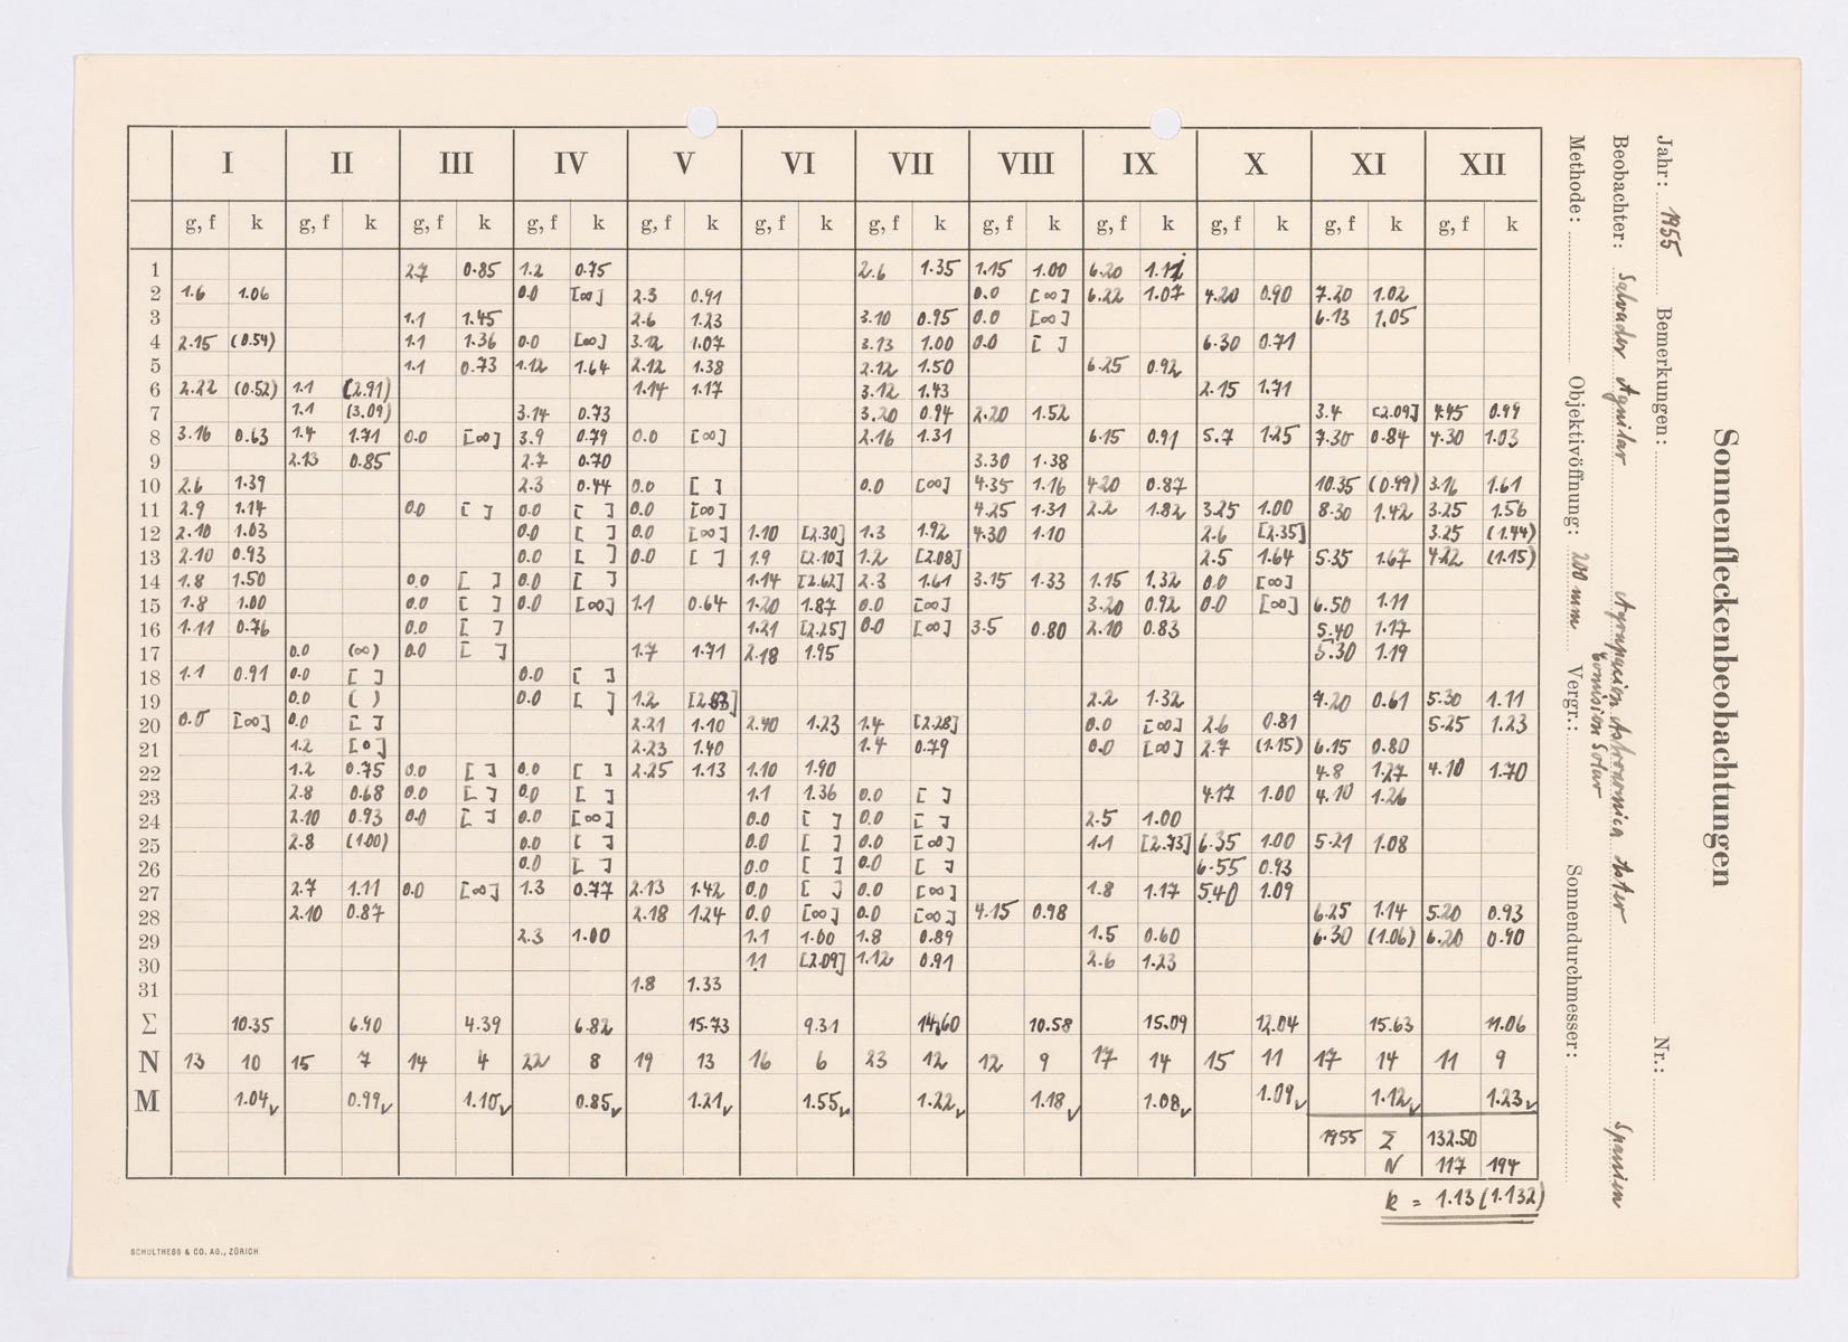 Sonnenfleckenbeobachtungen
Jahr: 1955 Bemerkungen: Nr.:
Beobachter: Salvador Aguilar Agrupacion Astronomica Aster Spanien
Comision Solar
Methode: Objektivöffnung: 200 mm Vergr.: Sonnendurchmesser:
I II III IV V VI VII VIII IX X XI XII
g, f k g, f k g, f k g, f k g, f k g, f k g, f k g, f k g, f k g, f k g, f k g, f k
1 2.7 0.85 1.2 0.75 2.6 1.35 1.15 1.00 6.20 1.11
2 1.6 1.06 0.0 [∞] 2.3 0.91 0.0 [∞] 6.22 1.07 4.20 0.90 7.20 1.02
3 1.1 1.45 2.6 1.23 3.10 0.95 0.0 [∞] 6.13 1.05
4 2.15 (0.54) 1.1 1.36 0.0 [∞] 3.12 1.07 3.13 1.00 0.0 [ ] 6.30 0.71
5 1.1 0.73 1.12 1.64 2.12 1.38 2.12 1.50 6.25 0.92
6 2.22 (0.52) 1.1 (2.91) 1.14 1.17 3.12 1.43 2.15 1.71
7 1.1 (3.09) 3.14 0.73 3.20 0.94 2.20 1.52 3.4 [2.09] 4.45 0.99
8 3.16 0.63 1.4 1.71 0.0 [∞] 3.9 0.79 0.0 [∞] 2.16 1.31 6.15 0.91 5.7 1.25 7.30 0.84 4.30 1.03
9 2.13 0.85 2.7 0.70 3.30 1.38
10 2.6 1.39 2.3 0.44 0.0 [ ] 0.0 [∞] 4.35 1.16 4.20 0.87 10.35 (0.99) 3.16 1.61
11 2.9 1.14 0.0 [ ] 0.0 [ ] 0.0 [∞] 4.25 1.31 2.2 1.82 3.25 1.00 8.30 1.42 3.25 1.56
12 2.10 1.03 0.0 [ ] 0.0 [∞] 1.10 [2.30] 1.3 1.92 4.30 1.10 2.6 [2.35] 3.25 (1.44)
13 2.10 0.93 0.0 [ ] 0.0 [ ] 1.9 [2.10] 1.2 [2.08] 2.5 1.64 5.35 1.67 4.22 (1.15)
14 1.8 1.50 0.0 [ ] 0.0 [ ] 1.14 [2.62] 2.3 1.61 3.15 1.33 1.15 1.32 0.0 [∞]
15 1.8 1.00 0.0 [ ] 0.0 [∞] 1.1 0.64 1.20 1.87 0.0 [∞] 3.20 0.92 0.0 [∞] 6.50 1.11
16 1.11 0.76 0.0 [ ] 1.21 [2.25] 0.0 [∞] 3.5 0.80 2.10 0.83 5.40 1.17
17 0.0 (∞) 0.0 [ ] 1.7 1.71 2.18 1.95 5.30 1.19
18 1.1 0.91 0.0 [ ] 0.0 [ ]
19 0.0 ( ) 0.0 [ ] 1.2 2.2 1.32 4.20 0.61 5.30 1.11
20 0.0 [∞] 0.0 [ ] 2.21 1.10 2.40 1.23 1.4 [2.28] 0.0 [∞] 2.6 0.81 5.25 1.23
21 1.2 [0] 2.23 1.40 1.4 0.79 0.0 [∞] 2.7 (1.15) 6.15 0.80
22 1.2 0.75 0.0 [ ] 0.0 [ ] 2.25 1.13 1.10 1.90 4.8 1.27 4.10 1.70
23 2.8 0.68 0.0 [ ] 0.0 [ ] 1.1 1.36 0.0 [ ] 4.17 1.00 4.10 1.26
24 2.10 0.93 0.0 [ ] 0.0 [∞] 0.0 [ ] 0.0 [ ] 2.5 1.00
25 2.8 (1.00) 0.0 [ ] 0.0 [ ] 0.0 [∞] 1.1 [2.73] 6.35 1.00 5.21 1.08
26 0.0 [ ] 0.0 [ ] 0.0 [ ] 6.55 0.93
27 2.7 1.11 0.0 [∞] 1.3 0.77 2.13 1.42 0.0 [ ] 0.0 [∞] 1.8 1.17 5.40 1.09
28 2.10 0.87 2.18 1.24 0.0 [∞] 0.0 [∞] 4.15 0.98 6.25 1.14 5.20 0.93
29 2.3 1.00 1.1 1.00 1.8 0.89 1.5 0.60 6.30 (1.06) 6.20 0.90
30 1.1 [2.09] 1.12 0.91 2.6 1.23
31 1.8 1.33
Σ 10.35 6.90 4.39 6.82 15.73 9.31 14.60 10.58 15.09 12.04 15.63 11.06
N 13 10 15 7 14 4 22 8 19 13 16 6 23 12 12 9 17 14 15 11 17 14 11 9
M 1.04 0.99 1.10 0.85 1.21 1.55 1.22 1.18 1.08 1.09 1.12 1.23
1955 Σ 132.50
N 117 194
k = 1.13 (1.132)
SCHULTHESS & CO. AG., ZÜRICH